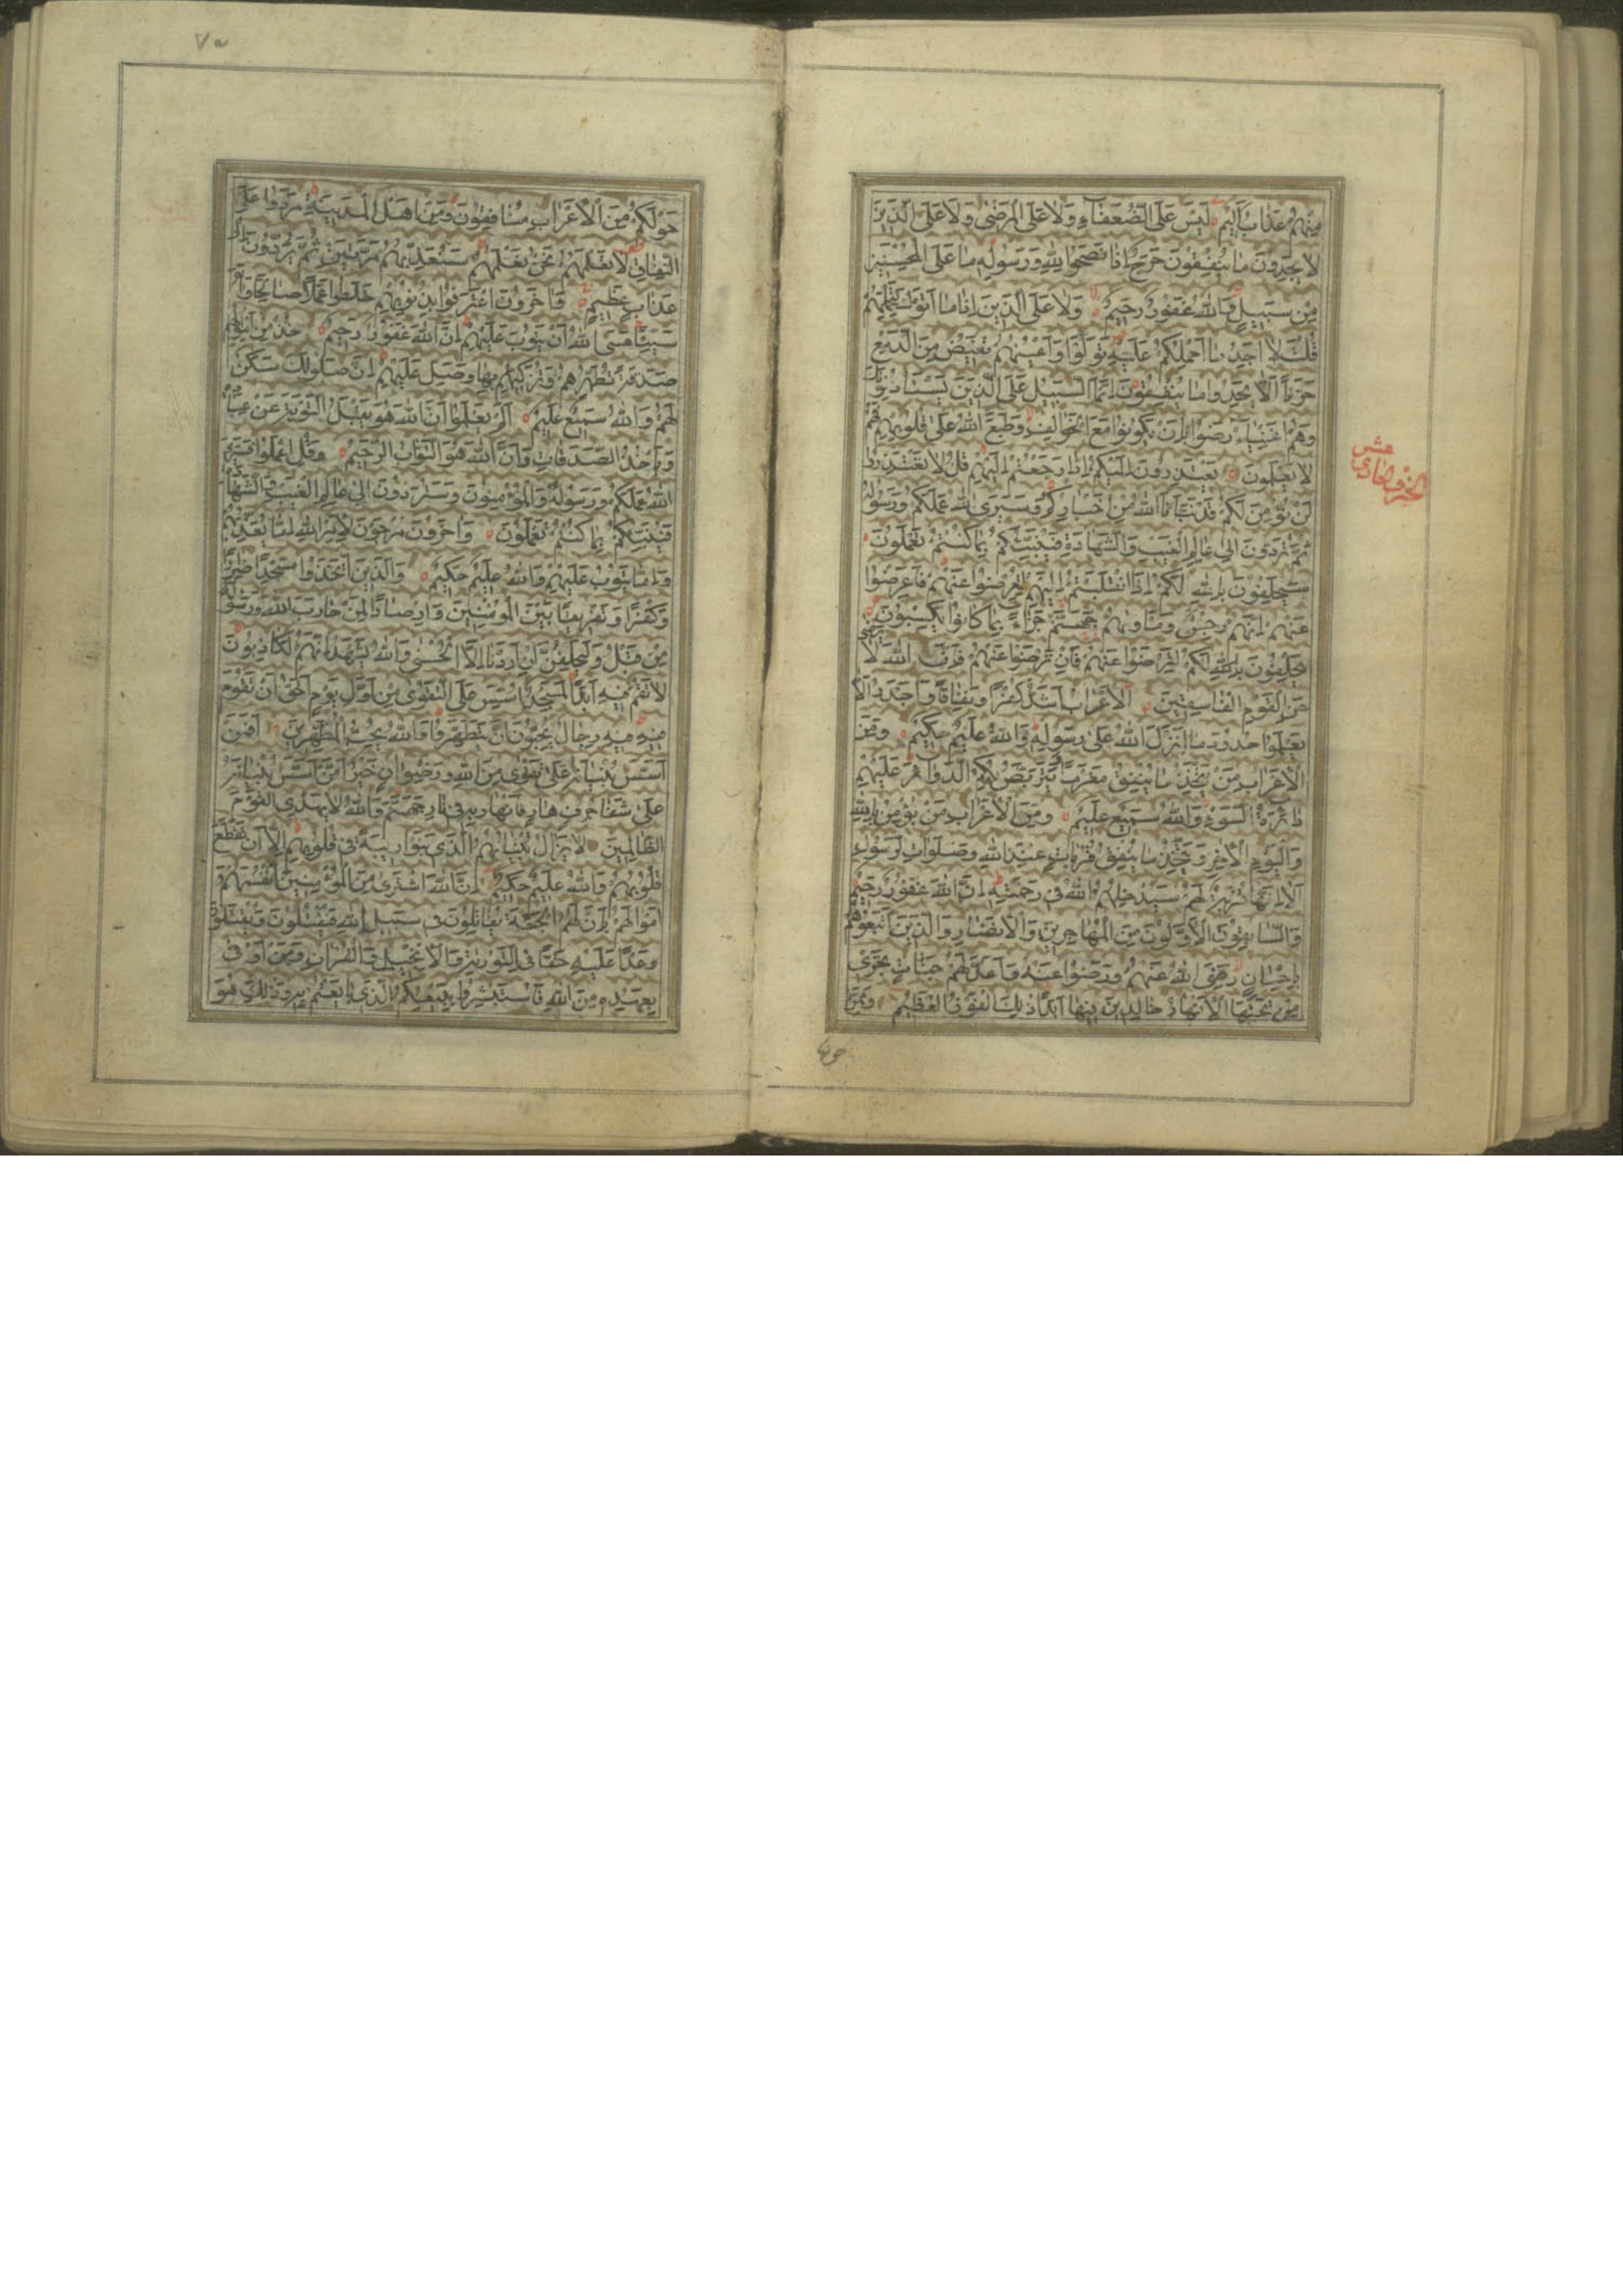 مِنْهُمْ عَذَابٌ اَلِيمٌ لَيْسَ عَلَى الضُّعَفَاءِ وَلَا عَلَى الْمَرْضٰى وَلَا عَلَى الَّذِينَ
لَا يَجِدُونَ مَا يُنْفِقُونَ حَرَجٌ اِذَا نَصَحُوا لِلّٰهِ وَرَسُولِهِ مَا عَلَى الْمُحْسِنِينَ
مِنْ سَبِيلٍ وَاللّٰهُ غَفُورٌ رَحِيمٌ وَلَا عَلَى الَّذِينَ اِذَا مَا اَتَوْكَ لِتَحْمِلَهُمْ
قُلْتَ لَا اَجِدُ مَا اَحْمِلُكُمْ عَلَيْهِ تَوَلَّوْا وَاَعْيُنُهُمْ تَفِيضُ مِنَ الدَّمْعِ
حَزَنًا اَلَّا يَجِدُوا مَا يُنْفِقُونَ اِنَّمَا السَّبِيلُ عَلَى الَّذِينَ يَسْتَاْذِنُونَكَ
وَهُمْ اَغْنِيَاءُ رَضُوا بِاَنْ يَكُونُوا مَعَ الْخَوَالِفِ وَطَبَعَ اللّٰهُ عَلٰى قُلُوبِهِمْ فَهُمْ
لَا يَعْلَمُونَ يَعْتَذِرُونَ اِلَيْكُمْ اِذَا رَجَعْتُمْ اِلَيْهِمْ قُلْ لَا تَعْتَذِرُوا
لَنْ نُؤْمِنَ لَكُمْ قَدْ نَبَّاَنَا اللّٰهُ مِنْ اَخْبَارِكُمْ وَسَيَرَى اللّٰهُ عَمَلَكُمْ وَرَسُولُهُ
ثُمَّ تُرَدُّونَ اِلٰى عَالِمِ الْغَيْبِ وَالشَّهَادَةِ فَيُنَبِّئُكُمْ بِمَا كُنْتُمْ تَعْمَلُونَ
سَيَحْلِفُونَ بِاللّٰهِ لَكُمْ اِذَا انْقَلَبْتُمْ اِلَيْهِمْ لِتُعْرِضُوا عَنْهُمْ فَاَعْرِضُوا
عَنْهُمْ اِنَّهُمْ رِجْسٌ وَمَاْوٰيهُمْ جَهَنَّمُ جَزَاءً بِمَا كَانُوا يَكْسِبُونَ
يَحْلِفُونَ بِاللّٰهِ لَكُمْ لِتَرْضَوْا عَنْهُمْ فَاِنْ تَرْضَوْا عَنْهُمْ فَاِنَّ اللّٰهَ لَا يَرْضٰى
عَنِ الْقَوْمِ الْفَاسِقِينَ اَلْاَعْرَابُ اَشَدُّ كُفْرًا وَنِفَاقًا وَاَجْدَرُ اَلَّا
يَعْلَمُوا حُدُودَ مَا اَنْزَلَ اللّٰهُ عَلٰى رَسُولِهِ وَاللّٰهُ عَلِيمٌ حَكِيمٌ وَمِنَ
الْاَعْرَابِ مَنْ يَتَّخِذُ مَا يُنْفِقُ مَغْرَمًا وَيَتَرَبَّصُ بِكُمُ الدَّوَائِرَ عَلَيْهِمْ
دَائِرَةُ السَّوْءِ وَاللّٰهُ سَمِيعٌ عَلِيمٌ وَمِنَ الْاَعْرَابِ مَنْ يُؤْمِنُ بِاللّٰهِ
وَالْيَوْمِ الْاٰخِرِ وَيَتَّخِذُ مَا يُنْفِقُ قُرُبَاتٍ عِنْدَ اللّٰهِ وَصَلَوَاتِ الرَّسُولِ
اَلَا اِنَّهَا قُرْبَةٌ لَهُمْ سَيُدْخِلُهُمُ اللّٰهُ فِي رَحْمَتِهِ اِنَّ اللّٰهَ غَفُورٌ رَحِيمٌ
وَالسَّابِقُونَ الْاَوَّلُونَ مِنَ الْمُهَاجِرِينَ وَالْاَنْصَارِ وَالَّذِينَ اتَّبَعُوهُمْ
بِاِحْسَانٍ رَضِيَ اللّٰهُ عَنْهُمْ وَرَضُوا عَنْهُ وَاَعَدَّ لَهُمْ جَنَّاتٍ تَجْرِي
مِنْ تَحْتِهَا الْاَنْهَارُ خَالِدِينَ فِيهَا اَبَدًا ذٰلِكَ الْفَوْزُ الْعَظِيمُ وَمِمَّنْ
الحزب الحادى عشر
حَوْلَكُمْ مِنَ الْاَعْرَابِ مُنَافِقُونَ وَمِنْ اَهْلِ الْمَدِينَةِ مَرَدُوا عَلَى
النِّفَاقِ لَا تَعْلَمُهُمْ نَحْنُ نَعْلَمُهُمْ سَنُعَذِّبُهُمْ مَرَّتَيْنِ ثُمَّ يُرَدُّونَ اِلٰى
عَذَابٍ عَظِيمٍ وَاٰخَرُونَ اعْتَرَفُوا بِذُنُوبِهِمْ خَلَطُوا عَمَلًا صَالِحًا وَاٰخَرَ
سَيِّئًا عَسَى اللّٰهُ اَنْ يَتُوبَ عَلَيْهِمْ اِنَّ اللّٰهَ غَفُورٌ رَحِيمٌ خُذْ مِنْ اَمْوَالِهِمْ
صَدَقَةً تُطَهِّرُهُمْ وَتُزَكِّيهِمْ بِهَا وَصَلِّ عَلَيْهِمْ اِنَّ صَلٰوتَكَ سَكَنٌ
لَهُمْ وَاللّٰهُ سَمِيعٌ عَلِيمٌ اَلَمْ يَعْلَمُوا اَنَّ اللّٰهَ هُوَ يَقْبَلُ التَّوْبَةَ عَنْ عِبَادِهِ
وَيَاْخُذُ الصَّدَقَاتِ وَاَنَّ اللّٰهَ هُوَ التَّوَّابُ الرَّحِيمُ وَقُلِ اعْمَلُوا فَسَيَرَى
اللّٰهُ عَمَلَكُمْ وَرَسُولُهُ وَالْمُؤْمِنُونَ وَسَتُرَدُّونَ اِلٰى عَالِمِ الْغَيْبِ وَالشَّهَادَةِ
فَيُنَبِّئُكُمْ بِمَا كُنْتُمْ تَعْمَلُونَ وَاٰخَرُونَ مُرْجَوْنَ لِاَمْرِ اللّٰهِ اِمَّا يُعَذِّبُهُمْ
وَاِمَّا يَتُوبُ عَلَيْهِمْ وَاللّٰهُ عَلِيمٌ حَكِيمٌ وَالَّذِينَ اتَّخَذُوا مَسْجِدًا ضِرَارًا
وَكُفْرًا وَتَفْرِيقًا بَيْنَ الْمُؤْمِنِينَ وَاِرْصَادًا لِمَنْ حَارَبَ اللّٰهَ وَرَسُولَهُ
مِنْ قَبْلُ وَلَيَحْلِفُنَّ اِنْ اَرَدْنَا اِلَّا الْحُسْنٰى وَاللّٰهُ يَشْهَدُ اِنَّهُمْ لَكَاذِبُونَ
لَا تَقُمْ فِيهِ اَبَدًا لَمَسْجِدٌ اُسِّسَ عَلَى التَّقْوٰى مِنْ اَوَّلِ يَوْمٍ اَحَقُّ اَنْ تَقُومَ
فِيهِ فِيهِ رِجَالٌ يُحِبُّونَ اَنْ يَتَطَهَّرُوا وَاللّٰهُ يُحِبُّ الْمُطَّهِّرِينَ اَفَمَنْ
اَسَّسَ بُنْيَانَهُ عَلٰى تَقْوٰى مِنَ اللّٰهِ وَرِضْوَانٍ خَيْرٌ اَمْ مَنْ اَسَّسَ بُنْيَانَهُ
عَلٰى شَفَا جُرُفٍ هَارٍ فَانْهَارَ بِهِ فِي نَارِ جَهَنَّمَ وَاللّٰهُ لَا يَهْدِي الْقَوْمَ
الظَّالِمِينَ لَا يَزَالُ بُنْيَانُهُمُ الَّذِي بَنَوْا رِيبَةً فِي قُلُوبِهِمْ اِلَّا اَنْ تَقَطَّعَ
قُلُوبُهُمْ وَاللّٰهُ عَلِيمٌ حَكِيمٌ اِنَّ اللّٰهَ اشْتَرٰى مِنَ الْمُؤْمِنِينَ اَنْفُسَهُمْ وَ
اَمْوَالَهُمْ بِاَنَّ لَهُمُ الْجَنَّةَ يُقَاتِلُونَ فِي سَبِيلِ اللّٰهِ فَيَقْتُلُونَ وَيُقْتَلُونَ
وَعْدًا عَلَيْهِ حَقًّا فِي التَّوْرٰيةِ وَالْاِنْجِيلِ وَالْقُرْاٰنِ وَمَنْ اَوْفٰى
بِعَهْدِهِ مِنَ اللّٰهِ فَاسْتَبْشِرُوا بِبَيْعِكُمُ الَّذِي بَايَعْتُمْ بِهِ وَذٰلِكَ هُوَ